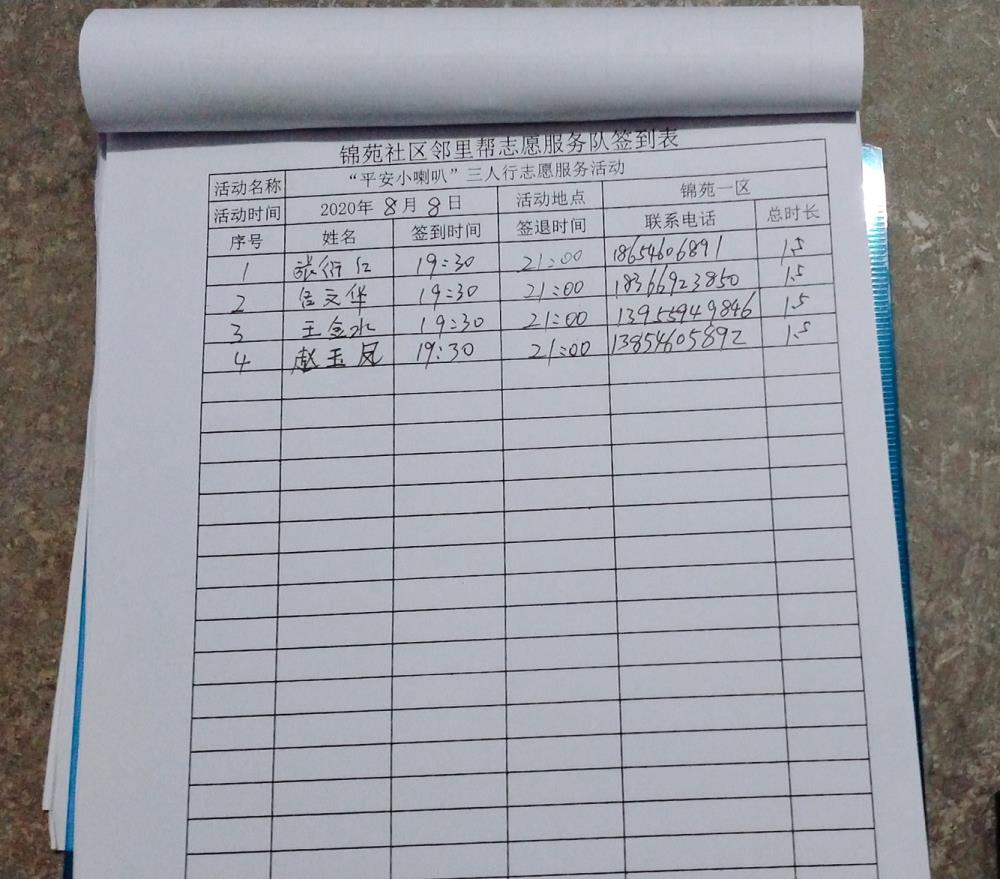 锦苑社区邻里帮志愿服务队签到表
活动名称 “平安小喇叭”三人行志愿服务活动
活动时间 2020年 8月 8日 活动地点 锦苑一区
序号 姓名 签到时间 签退时间 联系电话 总时长
1 张衍江 19:30 21:00 18654606891 1.5
2 吕文华 19:30 21:00 18366923850 1.5
3 王金水 19:30 21:00 13955949846 1.5
4 赵玉凤 19:30 21:00 13854605892 1.5